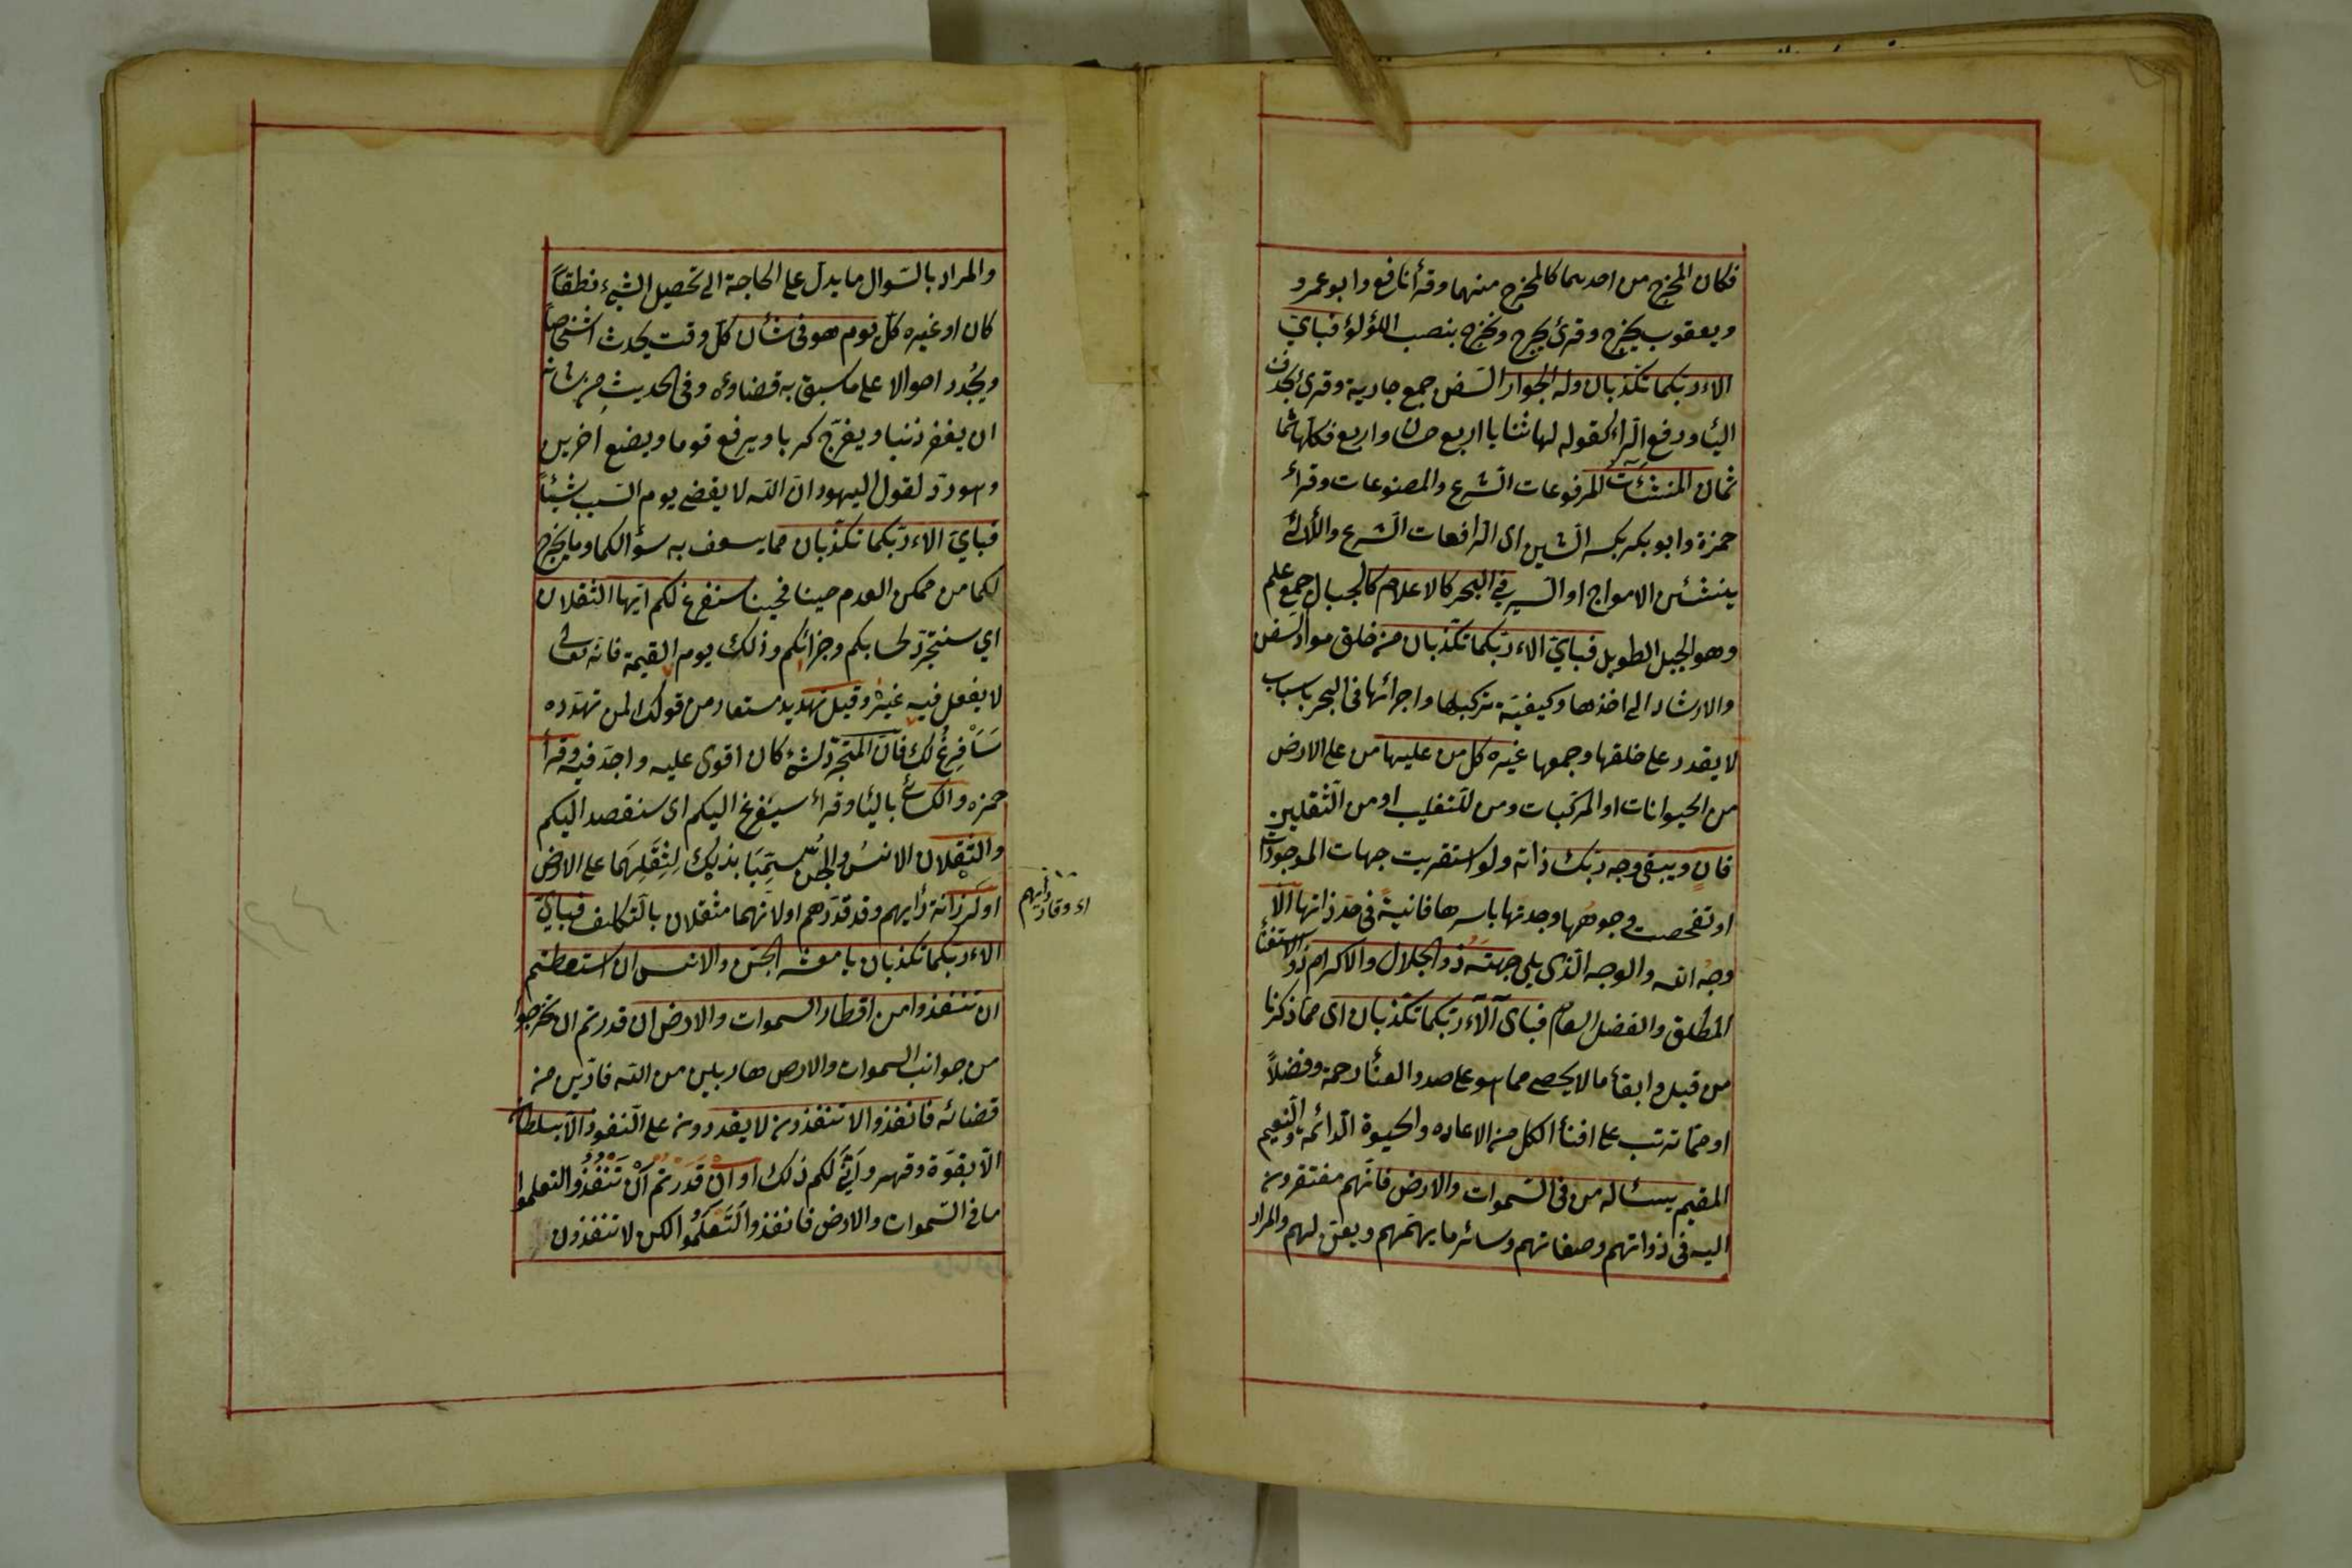 فكان المخرج من احدهما كالمخرج منهما وقرأ نافع وابو عمرو
ويعقوب يخرج وقرئ يخرج ونخرج بنصب اللؤلؤ فبايّ
الاء ربّكما تكذّبان وله الجوار السّفن جمع جارية وقرئ بحذف
اليا ورفع الرّاء كقوله لها ثنايا اربع حسان واربع فكلّها ثما
ثمان المنشئآت المرفوعات الشّرع والمصنوعات وقرأ
حمزة وابو بكر بكسر الشين اى الرافعات الشرع واللّاتى
ينشئن الامواج او السير في البحر كالاعلام كالجبال جمع علم
وهو الجبل الطويل فبايّ الاء ربّكما تكذّبان من خلق موادّ السفن
والارشاد الى اخذها وكيفيّة تركيبها واجرائها فى البحر باسباب
لا يقدر على خلقها وجمعها غيره كل من عليها من على الارض
من الحيوانات او المركّبات ومن للتغليب او من الثّقلين
فانٍ ويبقى وجه ربّك ذاته ولو استقريت جهات الموجودات
او تفحصت وجوهها وجدتها باسرها فانيةً فى حدّ ذاتها الّا
وجه اللّه والوجه الّذى يلى جهته ذو الجلال والاكرام ذو الاستغنا
المطلق والفضل العام فباى آلآء ربّكما تكذّبان اى ممّا ذكرنا
من قبل وابقاء ما لا يحصى مما هو على صدد الفنا رحمة وفضلاً
او ممّا ترتب على افناء الكل من الاعاده والحيوة الدائمة والنّعيم
المقيم يسئاله من فى السّموات والارض فانّهم مفتقرون
اليه فى ذواتهم وصفاتهم وسائر ما يهمّهم ويعنّ لهم والمراد
والمراد بالسّوال ما يدلّ على الحاجة الى تحصيل الشيء نطقاً
كان او غيره كلّ يوم هو فى شأن كلّ وقت يحدث اشخاصاً
ويجُدد احوالا على ما سبق به قضاوءه وفى الحديث من شانه
ان يغفر ذنبا ويفرّج كربا ويرفع قوما ويضع اخرين
وهو ردّ لقول اليهود انّ اللّه لا يقضى يوم السّبت شيئاً
فبايّ الاء ربّكما تكذّبان مما يسعف به سؤالكما وما يخرج
لكما من ممكن العدم حينا فحينا سنفرغ لكم ايّها الثقلان
اي سنتجرّد لحسابكم وجزائكم وذلك يوم القيمة فانّه تعالى
لا يفعل فيه غيره وقيل تهديد مستعار من قولك لمن تهدّده
سَاَفرغُ لك فانّ المتجرّد لشئ كان اقوى عليه واجدّ فيه وقرأ
حمزه والكسائى باليا وقراء سينفرغ اليكم اى سنقصد اليكم
والثّقلان الانسُ والجنّ سُمّيا بذلك لِثِقَلِهِمَا على الارض
او لرزانة رايهم وقد قدّرهم او لانهما مثقلان بالتّكاليف فبايّ
الاء ربّكما تكذّبان يا معشر الجنّ والانس ان استطعتم
ان تنفذوا من اقطار السموات والارض ان قدرتم ان تخرجوا
من جوانب السموات والارض هاربين من اللّه فارّين من
قضائه فانفذوا لا تنفذون لا يقدرون على النّفوذ الّا بسلطان
الّا بقوّة وقهر وانّى لكم ذلك او ان قدرتم ان تنفذوا لتعلموا
ما فى السّموات والارض فانفذوا لتعلموا لكن لا تنفذون